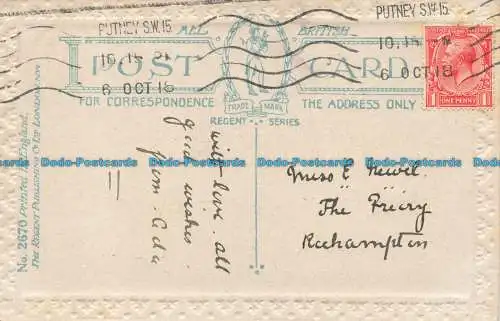 PUTNEY S.W.15
10.15
6 OCT 18
PUTNEY S.W.15
10.15
6 OCT 18
ALL BRITISH
POST CARD
FOR CORRESPONDENCE
THE ADDRESS ONLY
TRADE MARK
REGENT SERIES
1 ONE PENNY 1
No. 2670 Printed in England.
THE REGENT PUBLISHING CO LTD LONDON
with love all
good wishes
from Ada
Miss E
The Priory
Roehampton
Dodo-Postcards Dodo-Postcards Dodo-Postcards Dodo-Postcards
Dodo-Postcards Dodo-Postcards Dodo-Postcards Dodo-Postcards